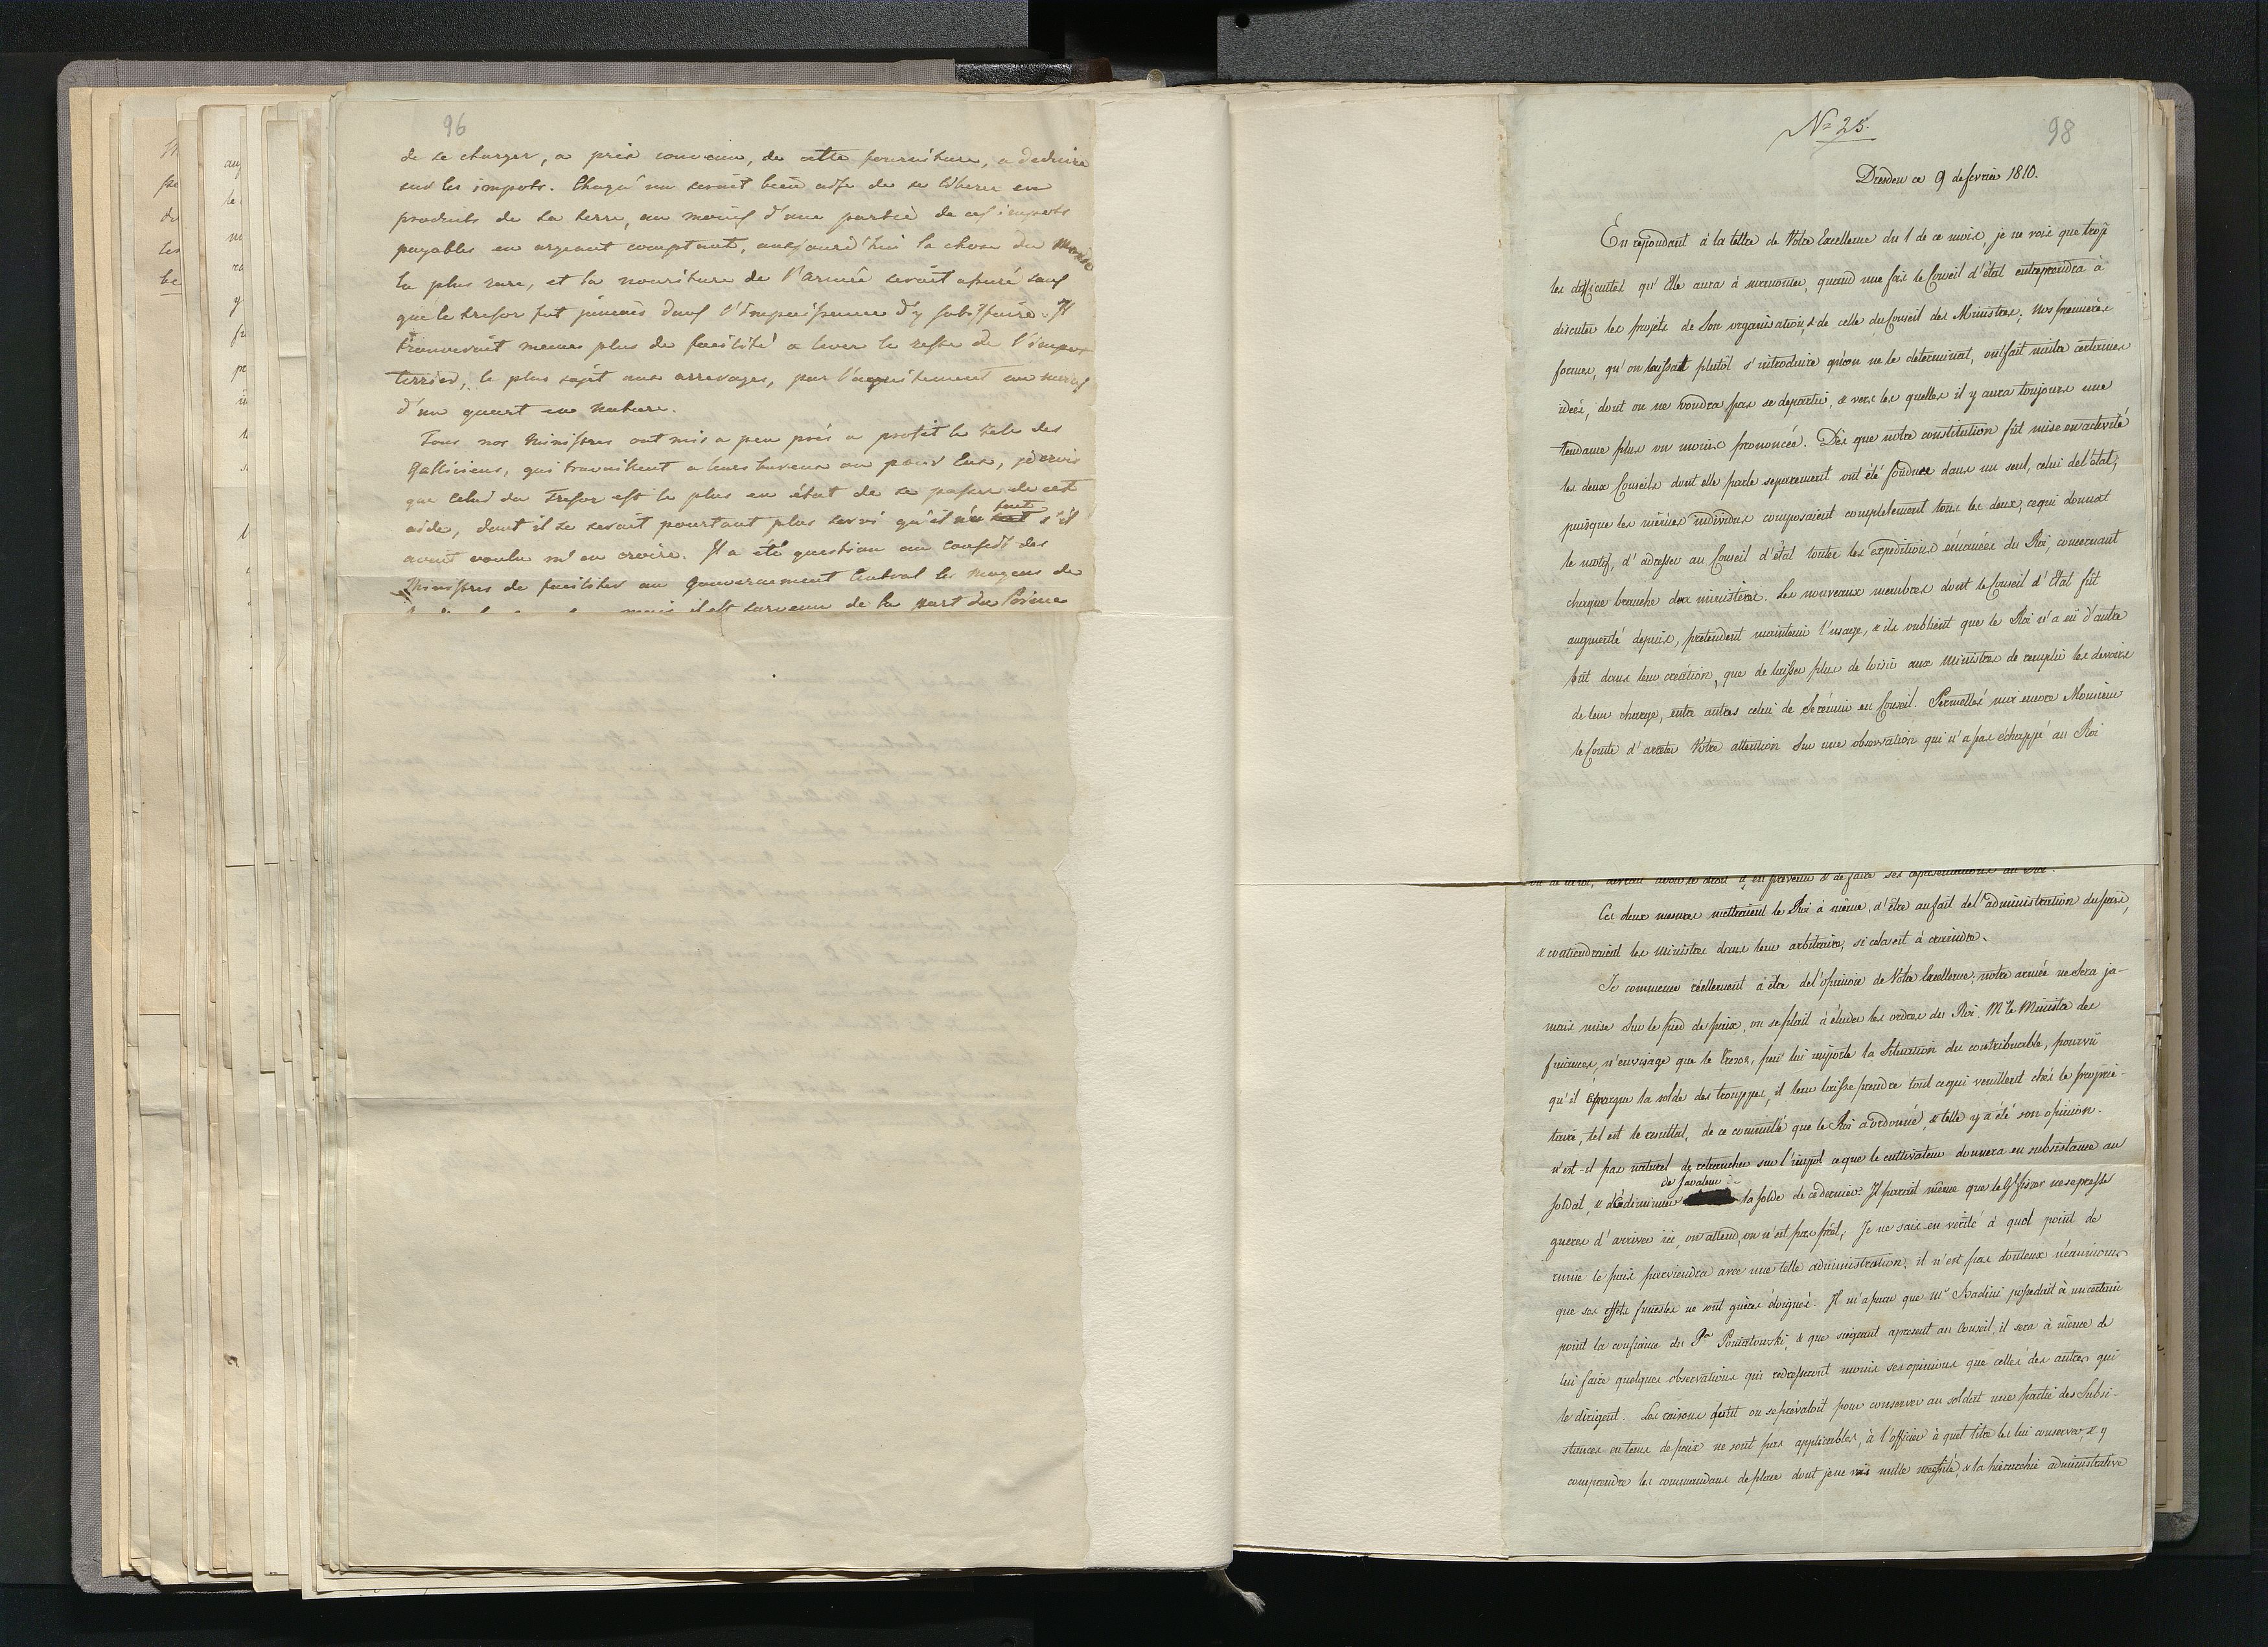 96
de se charger, a prix convenu, de cette fourniture, a deduire
sur les impots. Chaqu'un seroit bien aise de se liberer en
produits de sa terre, au moins d'une partie de ces impots
payables en argeant comptant, aujourd'hui la chose du monde
la plus rare, et la nouriture de l'armée seroit assuré sans
que le tresor fut jamais dans l'impuissance d'y sattisfaire. Il
trouveroit meme plus de facilité a lever le reste de l'impot
, le plus sujet aux arrerages, par l'acquitement au moins
d'un quart en nature.
Tous nos Ministres ont mis a peu près a profit le zele des
Galliciens, qui travaillent a leurs bureaux ou pour Eux, je crois
que celui du Tresor est le plus en état de se passer de cet
aide, dont il se seroit pourtant plus servi qu'il n'en s'il
avoit voulu m'en croire. Il a été question au conseil des
Ministres de faciliter au Gouvernement Central les moyens de
mais il est survenu de la part du Prince
98
No 25.
Dresden ce 9 de fevrier 1810.
En repondant à la lettre de Votre Excellence du 1 de ce mois, je ne vois que trop
les difficultés qu'Elle aura à surmonter, quand une fois le Conseil d'état entreprendra à
discuter les projets de Son organisation, & de celle du Conseil des Ministres; Nos premières
formes, qu'on laissait plutôt s'introduire qu'on ne le determinat, ont fait naitre certaines
idées, dont on ne voudra pas se departir, & vers les quelles il y aura toujours une
tendance plus ou moins prononcée. Dès que notre constitution fut mise en activité
les deux Conseils dont elle parle separement ont été fondues dans un seul, celui de l'état;
puisque les mêmes individus composaient completement tous les deux, ce qui donnat
le motif, d'adresser au Conseil d'état toutes les expeditions émanées du Roi, concernant
chaque branche des ministères. Les nouveaux membres dont le Conseil d'Etat fût
augmenté depuis, pretendent maintenir l'usage, & ils oublient que le Roi n'a eü d'autre
but dans leur création, que de laisser plus de loisir aux Ministres de remplir les devoirs
de leur charge, entre autres celui de se reunir en Conseil. Permettés moi encore Monsieur
le Comte d'arreter Votre attention sur une observation qui n'a pas échappé au Roi
Ces deux mesures mettraient le Roi à même, d'être au fait de l'administration du pais,
& contiendraient les ministres dans leur arbitraire, si cela est à craindre.
Je commence réellement à être de l'opinion de Votre Excellence, notre armée ne sera ja-
mais mise sur le pied de paix, on se plait à éluder les ordres du Roi. Mr le Ministre des
finances, n'envisage que le tresor, peu lui importe la situation du contribuable, pourvü
qu'il épargne la solde des trouppes, il leur laisse prendre tout ce qui veuillent chés le proprie-
taire, tel est le resultat, de ce comitté que le Roi a ordonné, & telle y a été son opinion.
n'est-il pas naturel de retrancher sur l'impot ce que le cultivateur donnera en subsistance au
de la valeur de
soldat, & de diminuer la solde de ce dernier? Il parait même que le ne se presse
gueres d'arriver ici, on attend, on n'est pas prêt; Je ne sais en verité à quel point de
ruine le pais parviendra avec une telle administration, il n'est pas douteux néanmoins
que ses effets funestes ne sont guères éloignés. Il m'a paru que Mr Badeni possedait à un certain
point la confiance du Pce Poniatowski, & que siégeant apresent au Conseil, il sera à même de
lui faire quelques observations qui redresseront moins ses opinions que celles des autres qui
le dirigent. Les raisons dont on se prévaloit pour conserver au soldat une partie des Subsi-
stances en tems de paix ne sont pas applicables, à l'officier à quel titre les lui conserver, & y
comprendre les commandans de place dont je ne vois nulle necessité, & la hierarchie administrative